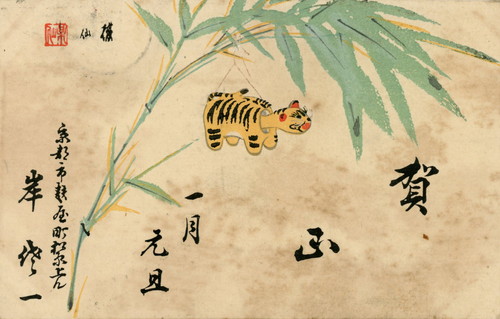 賀正
一月
元旦
京都市麩屋町松原上ル
岸
一
仙